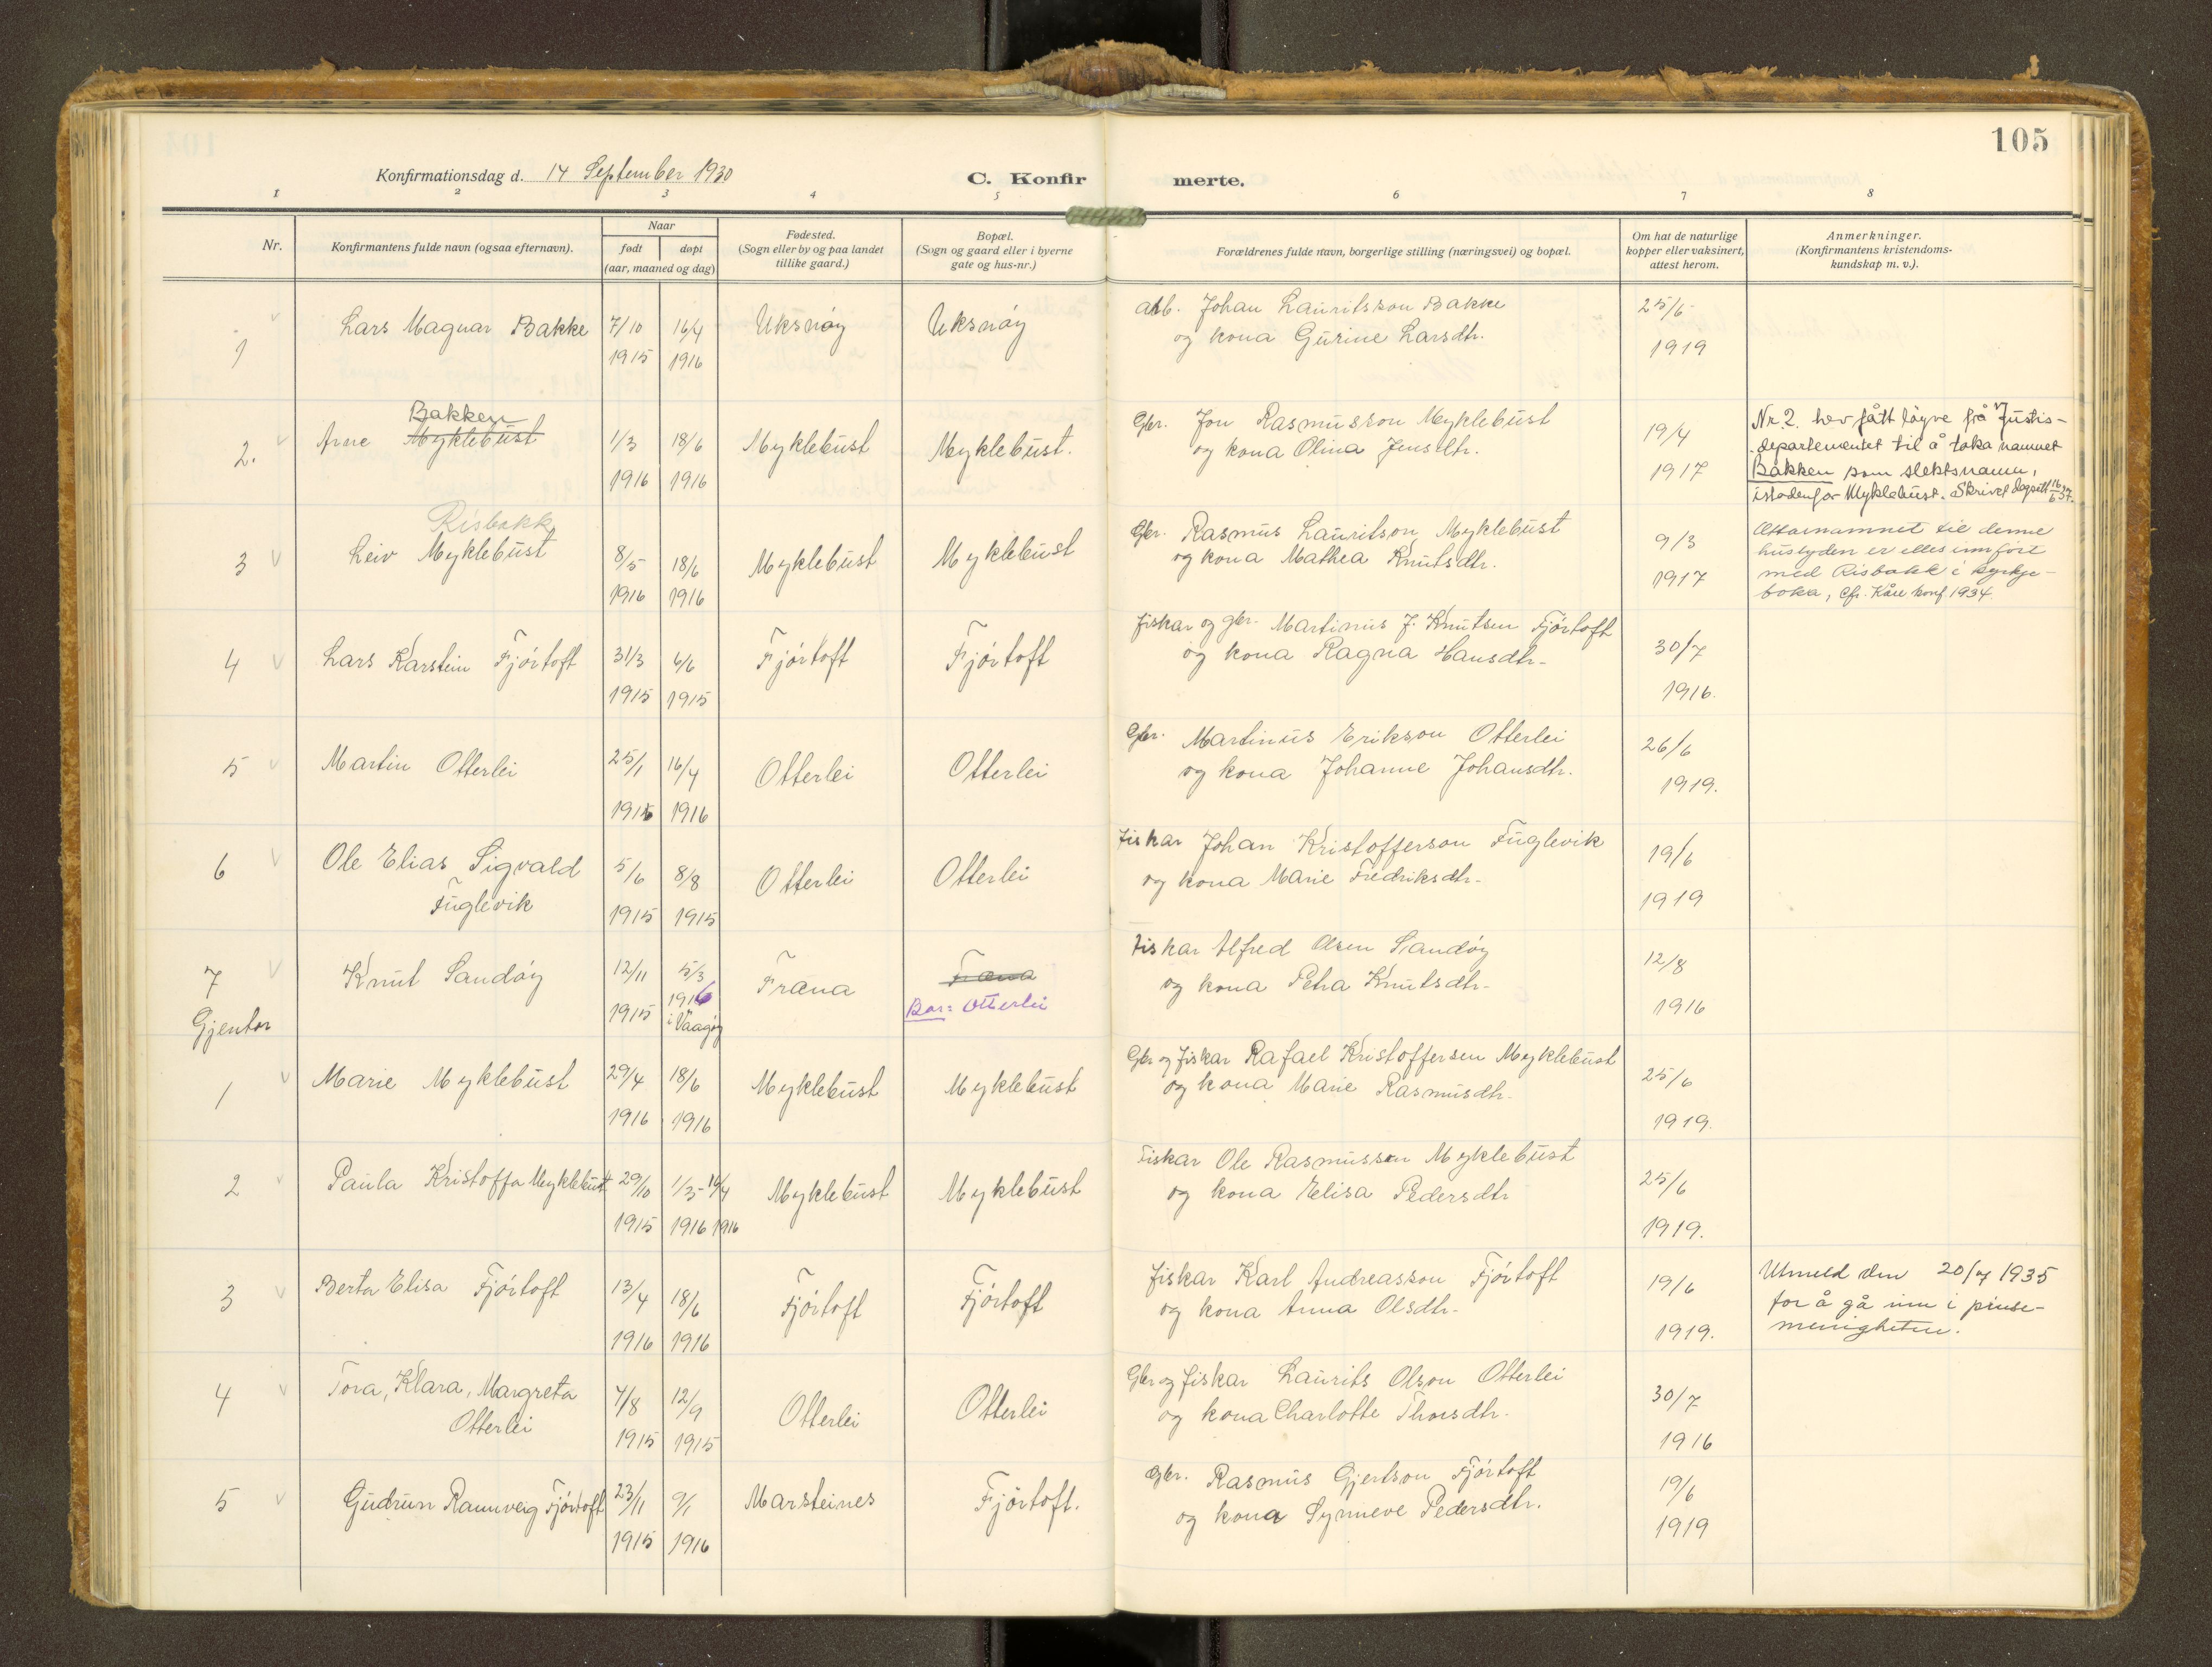 105
Konfirmationsdag d. 14 September 1930
C. Konfir merte.
1 2 3 4 5 6 7 8
Nr.
Konfirmantens fulde navn (ogsaa efternavn).
Naar
født døpt
(aar, maaned og dag)
Fødested.
(Sogn eller by og paa landet
tillike gaard.)
Bopæl.
(Sogn og gaard eller i byerne
gate og hus-nr.)
Forældrenes fulde navn, borgerlige stilling (næringsvei) og bopæl.
Om hat de naturlige
kopper eller vaksinert,
attest herom.
Anmerkninger.
(Konfirmantens kristendoms-
kundskap m. v.).
1 Lars Magnar Bakke 7/10 16/4 Uksnøy Uksnøy arb. Johan Lauritsson Bakke 25/6
1915 1916 og kona Gurine Larsdtr. 1919
Bakken
2. Arne Myklebust 1/3 18/6 Myklebust Myklebust. Gbr. Jon Rasmusson Myklebust 19/4
1916 1916 og kona Olina Jensdtr. 1917
Nr. 2. hev fått løyve frå Justis-
departementet til å taka namnet
Bakken som slektsnamn,
istadenfor Myklebust. Skrivet dagsett 16/6 37.
Risbakk
3 Leiv Myklebust 8/5 18/6 Myklebust Myklebust Gbr. Rasmus Lauritson Myklebust 9/3
1916 1916 og kona Mathea Knutsdtr. 1917
Ættarnamnet til denne
huslyden er elles innført
med Risbakk i kyrkje-
boka, cfr. Kåre konf 1934.
4 Lars Karstein Fjørtoft 31/3 6/6 Fjørtoft Fjørtoft fiskar og gbr. Martinus J. Knutsen Fjørtoft 30/7
1915 1915 og kona Ragna Hansdtr- 1916.
5 Martin Otterlei 25/1 16/4 Otterlei Otterlei Gbr. Martinus Erikson Otterlei 26/6
1916 1916 og kona Johanne Johansdtr. 1919.
6 Ole Elias Sigvald 5/6 8/8 Otterlei Otterlei Fiskar Johan Kristofferson Fuglevik 19/6
Fuglevik 1915 1915 og kona Marie Fredriksdtr- 1919
7 Knut Sandøy 12/11 5/3 Fræna Fræna Fiskar Alfred Olsen Sandøy 12/8
1915 1916 i Vaagøy Bor: Otterlei og kona Petra Knutsdtr- 1916
Gjentor
1 Marie Myklebust 29/4 18/6 Myklebust Myklebust Gbr og fiskar Rafael Kristoffersen Myklebust 25/6
1916 1916 og kona Marie Rasmusdtr- 1919.
2 Paula Kristoffa Myklebust 29/10 1/3- 16/4 Myklebust Myklebust Fiskar Ole Rasmussen Myklebust 25/6
1915 1916 1916 og kona Elisa Pedersdtr 1919.
3 Berta Elisa Fjørtoft 13/4 18/6 Fjørtoft Fjørtoft fiskar Karl Andreasson Fjørtoft 19/6
1916 1916 og kona Anna Olsdtr- 1919.
Utmeld den 20/7 1935
for å gå inn i pinse-
menigheten.
4 Tora, Klara, Margreta 7/8 12/9 Otterlei Otterlei Gbr og fiskar Laurits Olson Otterlei 30/7
Otterlei 1915 1915 og kona Charlotte Thorsdtr. 1916
5 Gudrun Rannveig Fjørtoft 23/11 9/1 Marsteines Fjørtoft. Gbr. Rasmus Gjertson Fjørtoft 19/6
1915 1916 og kona Synneve Pedersdtr. 1919